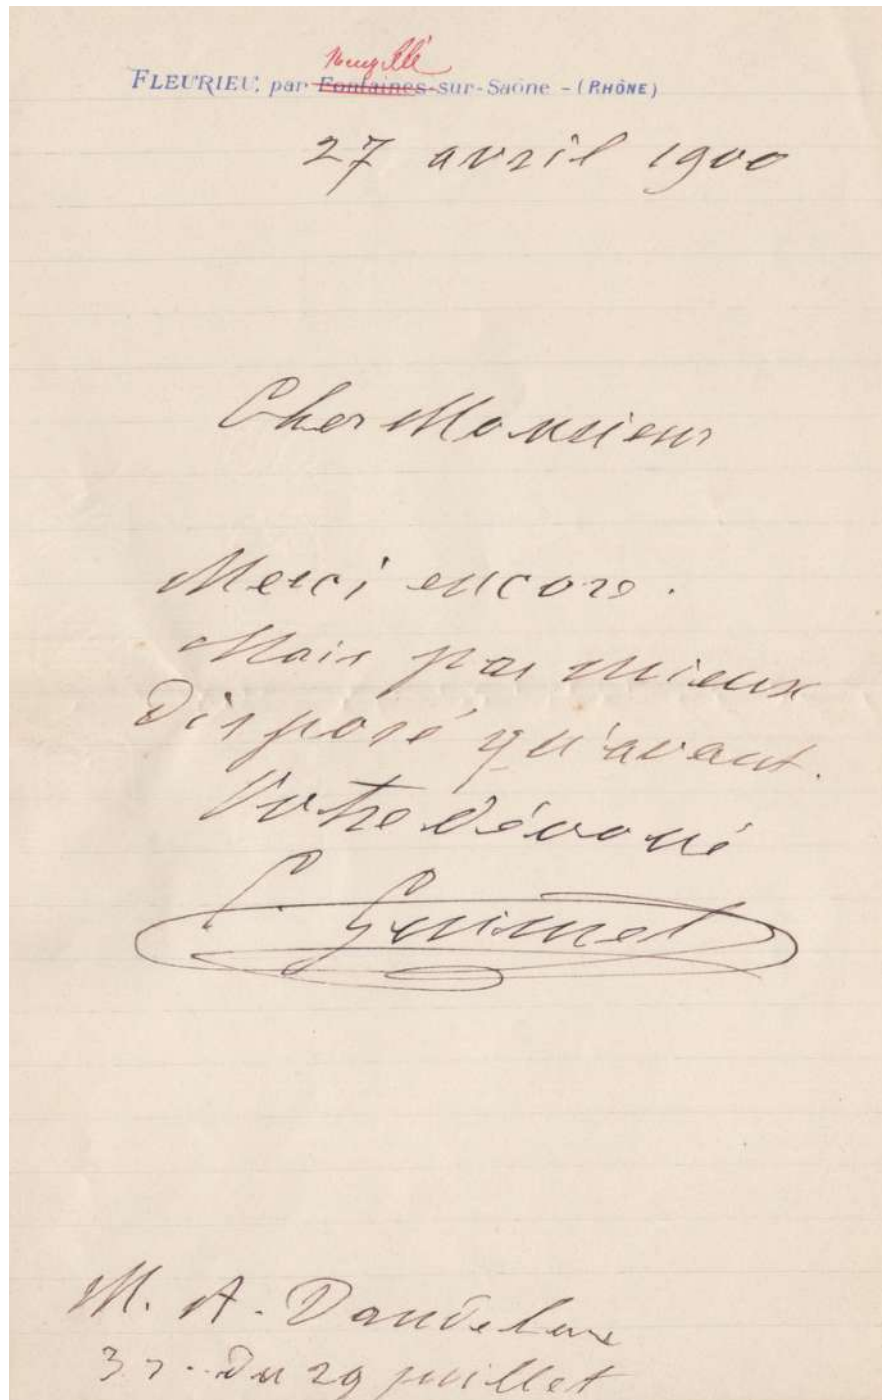 Neuville
FLEURIEU, par Fontaines-sur-Saône - (RHÔNE)
27 avril 1900
Cher Monsieur
Merci encore.
Mais pas mieux
Disposé qu'avant.
Votre Dévoué
E. Guimet
M. A.
du 29 juillet